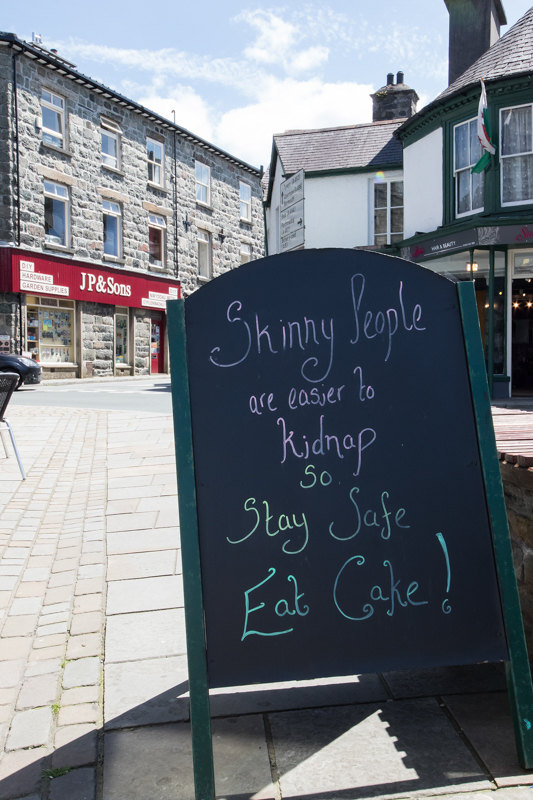 DIY
HARDWARE
GARDEN SUPPLIES
JP&Sons
HAIR & BEAUTY
Skinny People
are easier to
Kidnap
So
Stay Safe
Eat Cake!